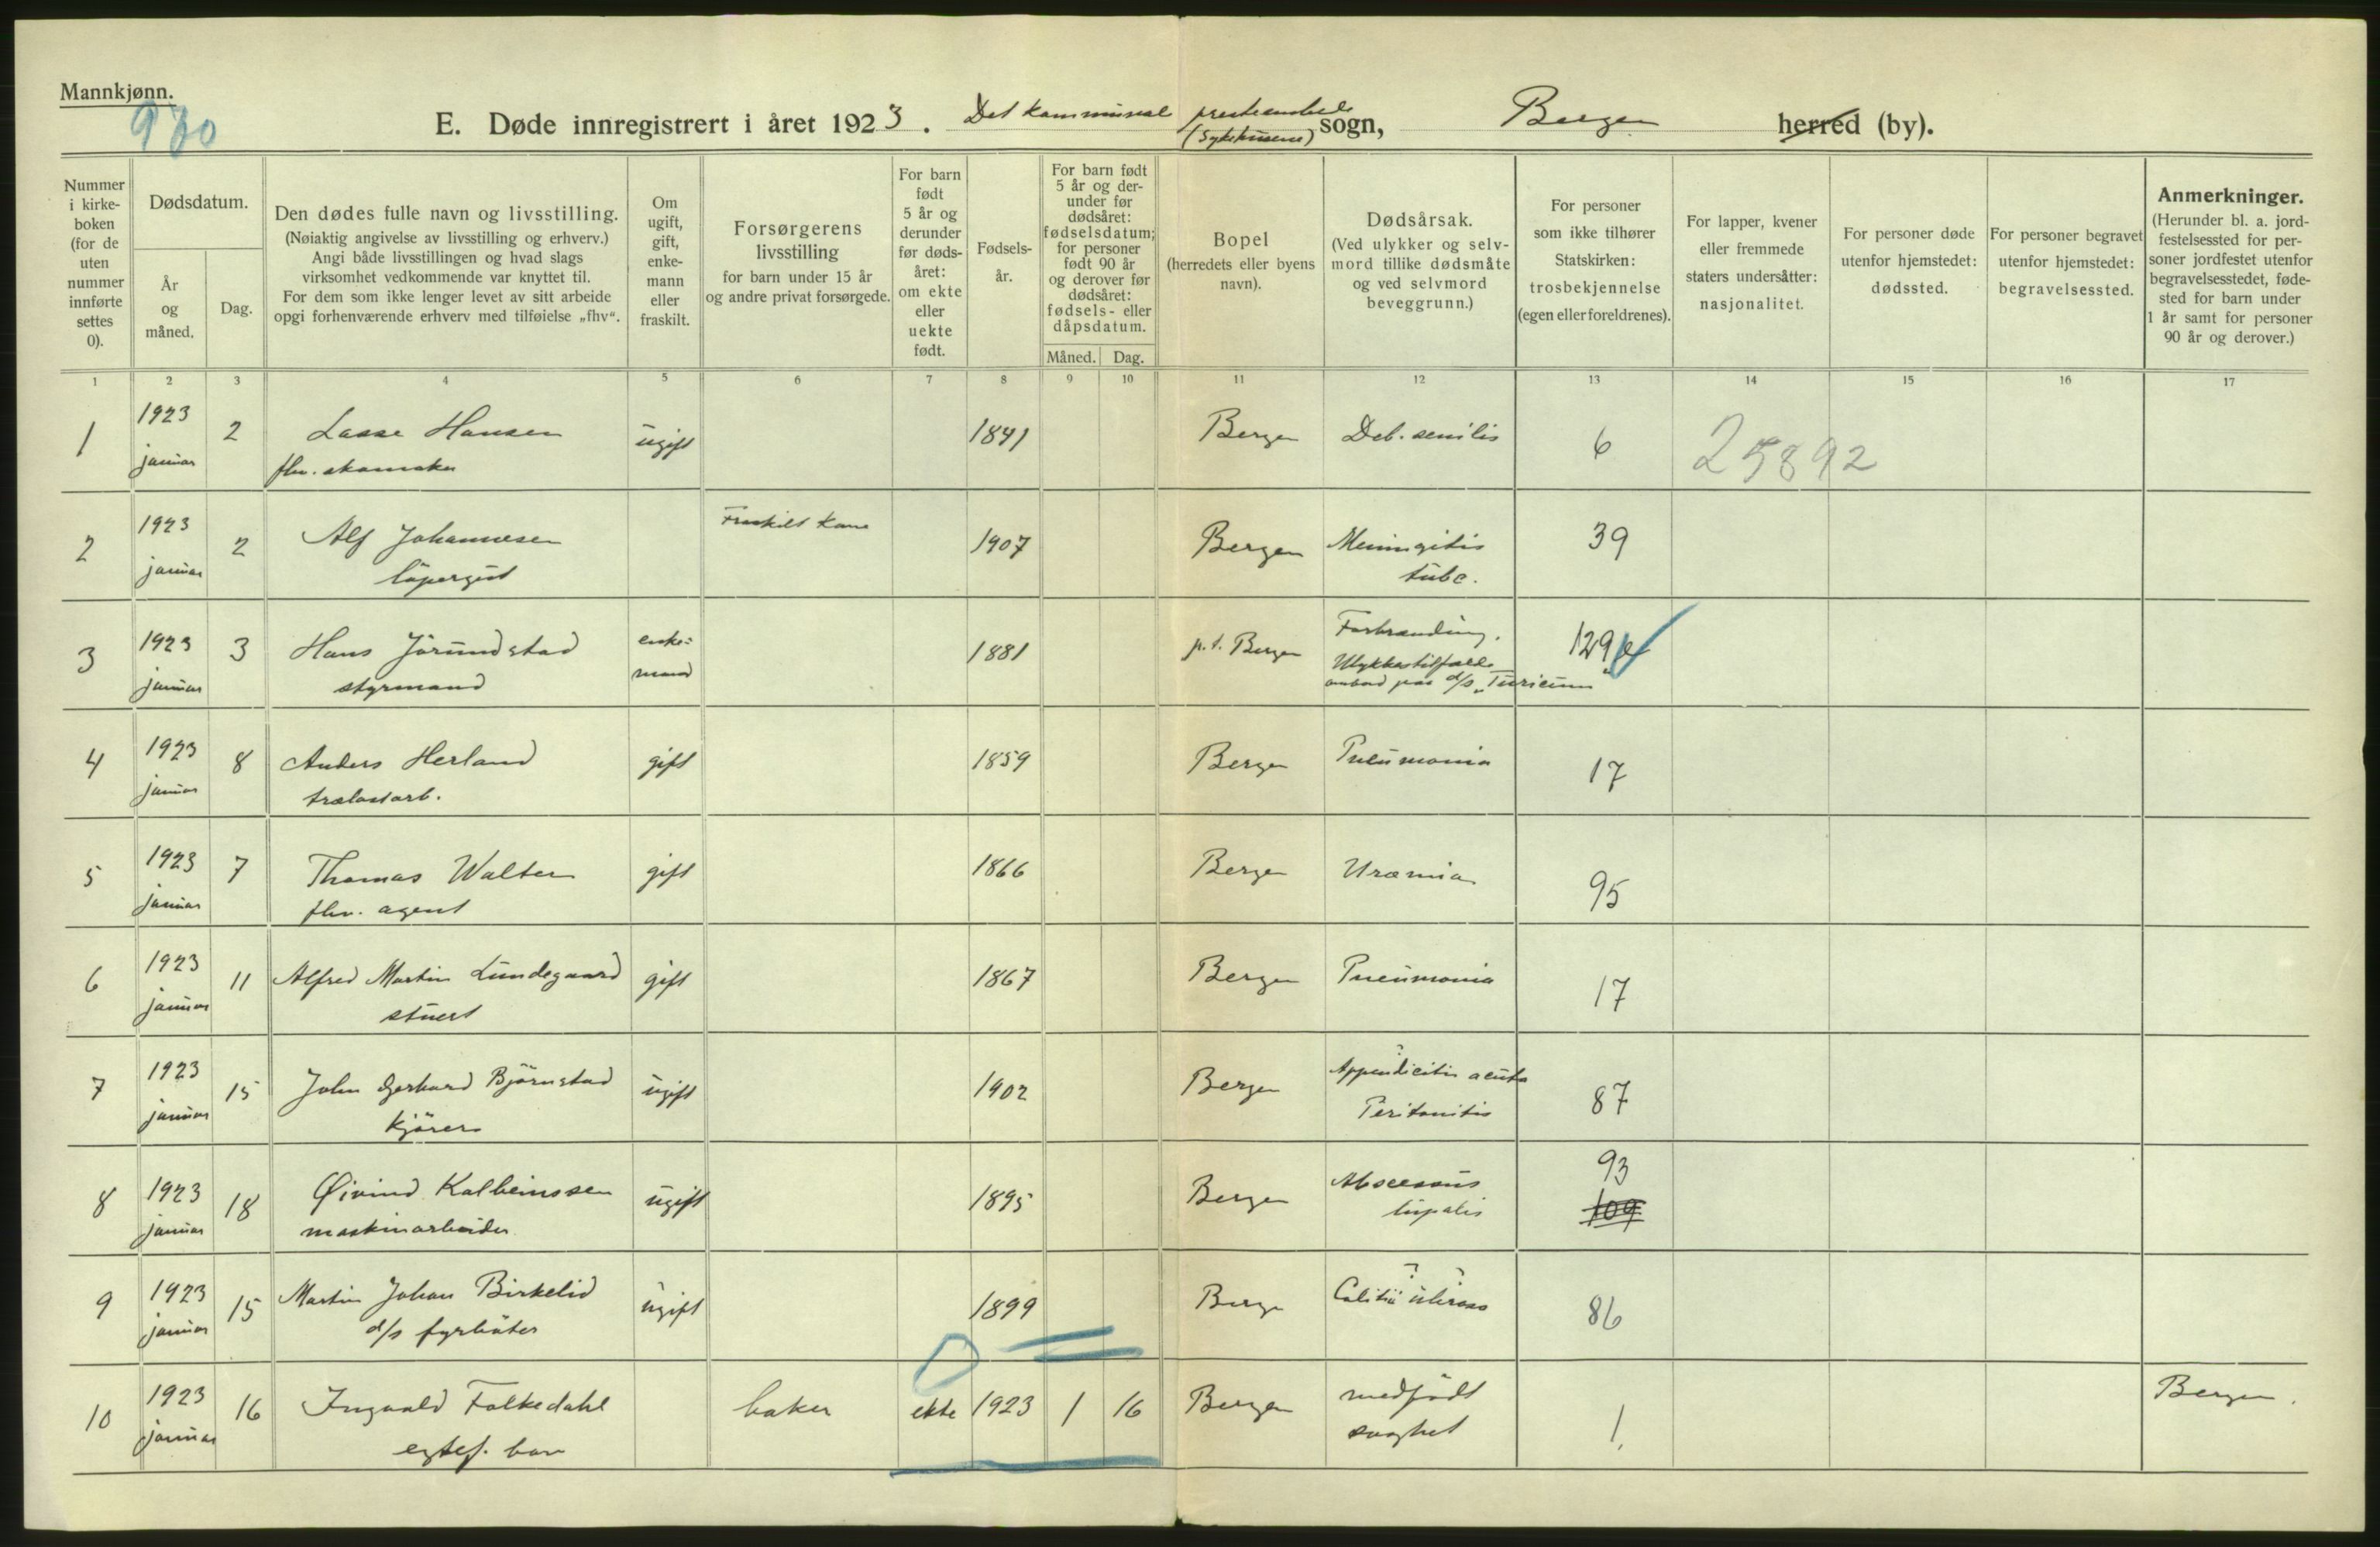 Mannkjønn.
970
E. Døde innregistrert i året 1923. Det kommunale presteembede (Sykehusene) sogn, Bergen herred (by).
Nummer i kirkeboken (for de uten nummer innførte settes 0).
Dødsdatum.
År og måned.
Dag.
Den dødes fulle navn og livsstilling.
(Nøiaktig angivelse av livsstilling og erhverv.)
Angi både livsstillingen og hvad slags
virksomhet vedkommende var knyttet til.
For dem som ikke lenger levet av sitt arbeide
opgi forhenværende erhverv med tilføielse „fhv“.
Om ugift, gift, enkemann eller fraskilt.
Forsørgerens
livsstilling
for barn under 15 år
og andre privat forsørgede.
For barn født 5 år og derunder før dødsåret: om ekte eller uekte født.
Fødselsår.
For barn født 5 år og derunder før dødsåret: fødselsdatum; for personer født 90 år og derover før dødsåret: fødsels- eller dåpsdatum.
Måned. Dag.
Bopel
(herredets eller byens
navn).
Dødsårsak.
(Ved ulykker og selv-
mord tillike dødsmåte
og ved selvmord
beveggrunn.)
For personer
som ikke tilhører
Statskirken:
trosbekjennelse
(egen eller foreldrenes).
For lapper, kvener
eller fremmede
staters undersåtter:
nasjonalitet.
For personer døde
utenfor hjemstedet:
dødssted.
For personer begravet
utenfor hjemstedet:
begravelsessted.
Anmerkninger.
(Herunder bl. a. jord-
festelsessted for per-
soner jordfestet utenfor
begravelsesstedet, føde-
sted for barn under
1 år samt for personer
90 år og derover.)
1 2 3 4 5 6 7 8 9 10 11 12 13 14 15 16 17
1 1923 januar 2 Lasse Hansen ugift 1841 Bergen Deb. senilis 6 25892
fhv. skomaker
2 1923 januar 2 Alf Johannesen Fraskilt kone 1907 Bergen Meningitis 39
løpergut tubc.
3 1923 januar 3 Hans Jörundstad enke- 1881 p.t. Bergen Forbrænding. 129
styrmand mand Ulykkestilfælde
ombord paa d/s „Turicum“
4 1923 januar 8 Anders Herland gift 1859 Bergen Pneumonia 17
trælastarb.
5 1923 januar 7 Thomas Walter gift 1866 Bergen Uræmia 95
fhv. agent
6 1923 januar 11 Alfred Martin Lundegaard gift 1867 Bergen Pneumonia 17
stuert
7 1923 januar 15 John Gerhard Björnstad ugift 1902 Bergen Appendicitis acuta 87
kjörer Peritonitis
8 1923 januar 18 Øivind Kolbeinssen ugift 1895 Bergen Abscessus 93
maskinarbeider 109
9 1923 januar 15 Martin Johan Birkelid ugift 1899 Bergen 86
d/s fyrbøter
10 1923 januar 16 Ingvald Folkedahl baker ekte 1923 1 16 Bergen medfødt 1. Bergen.
egtef. barn svaghet